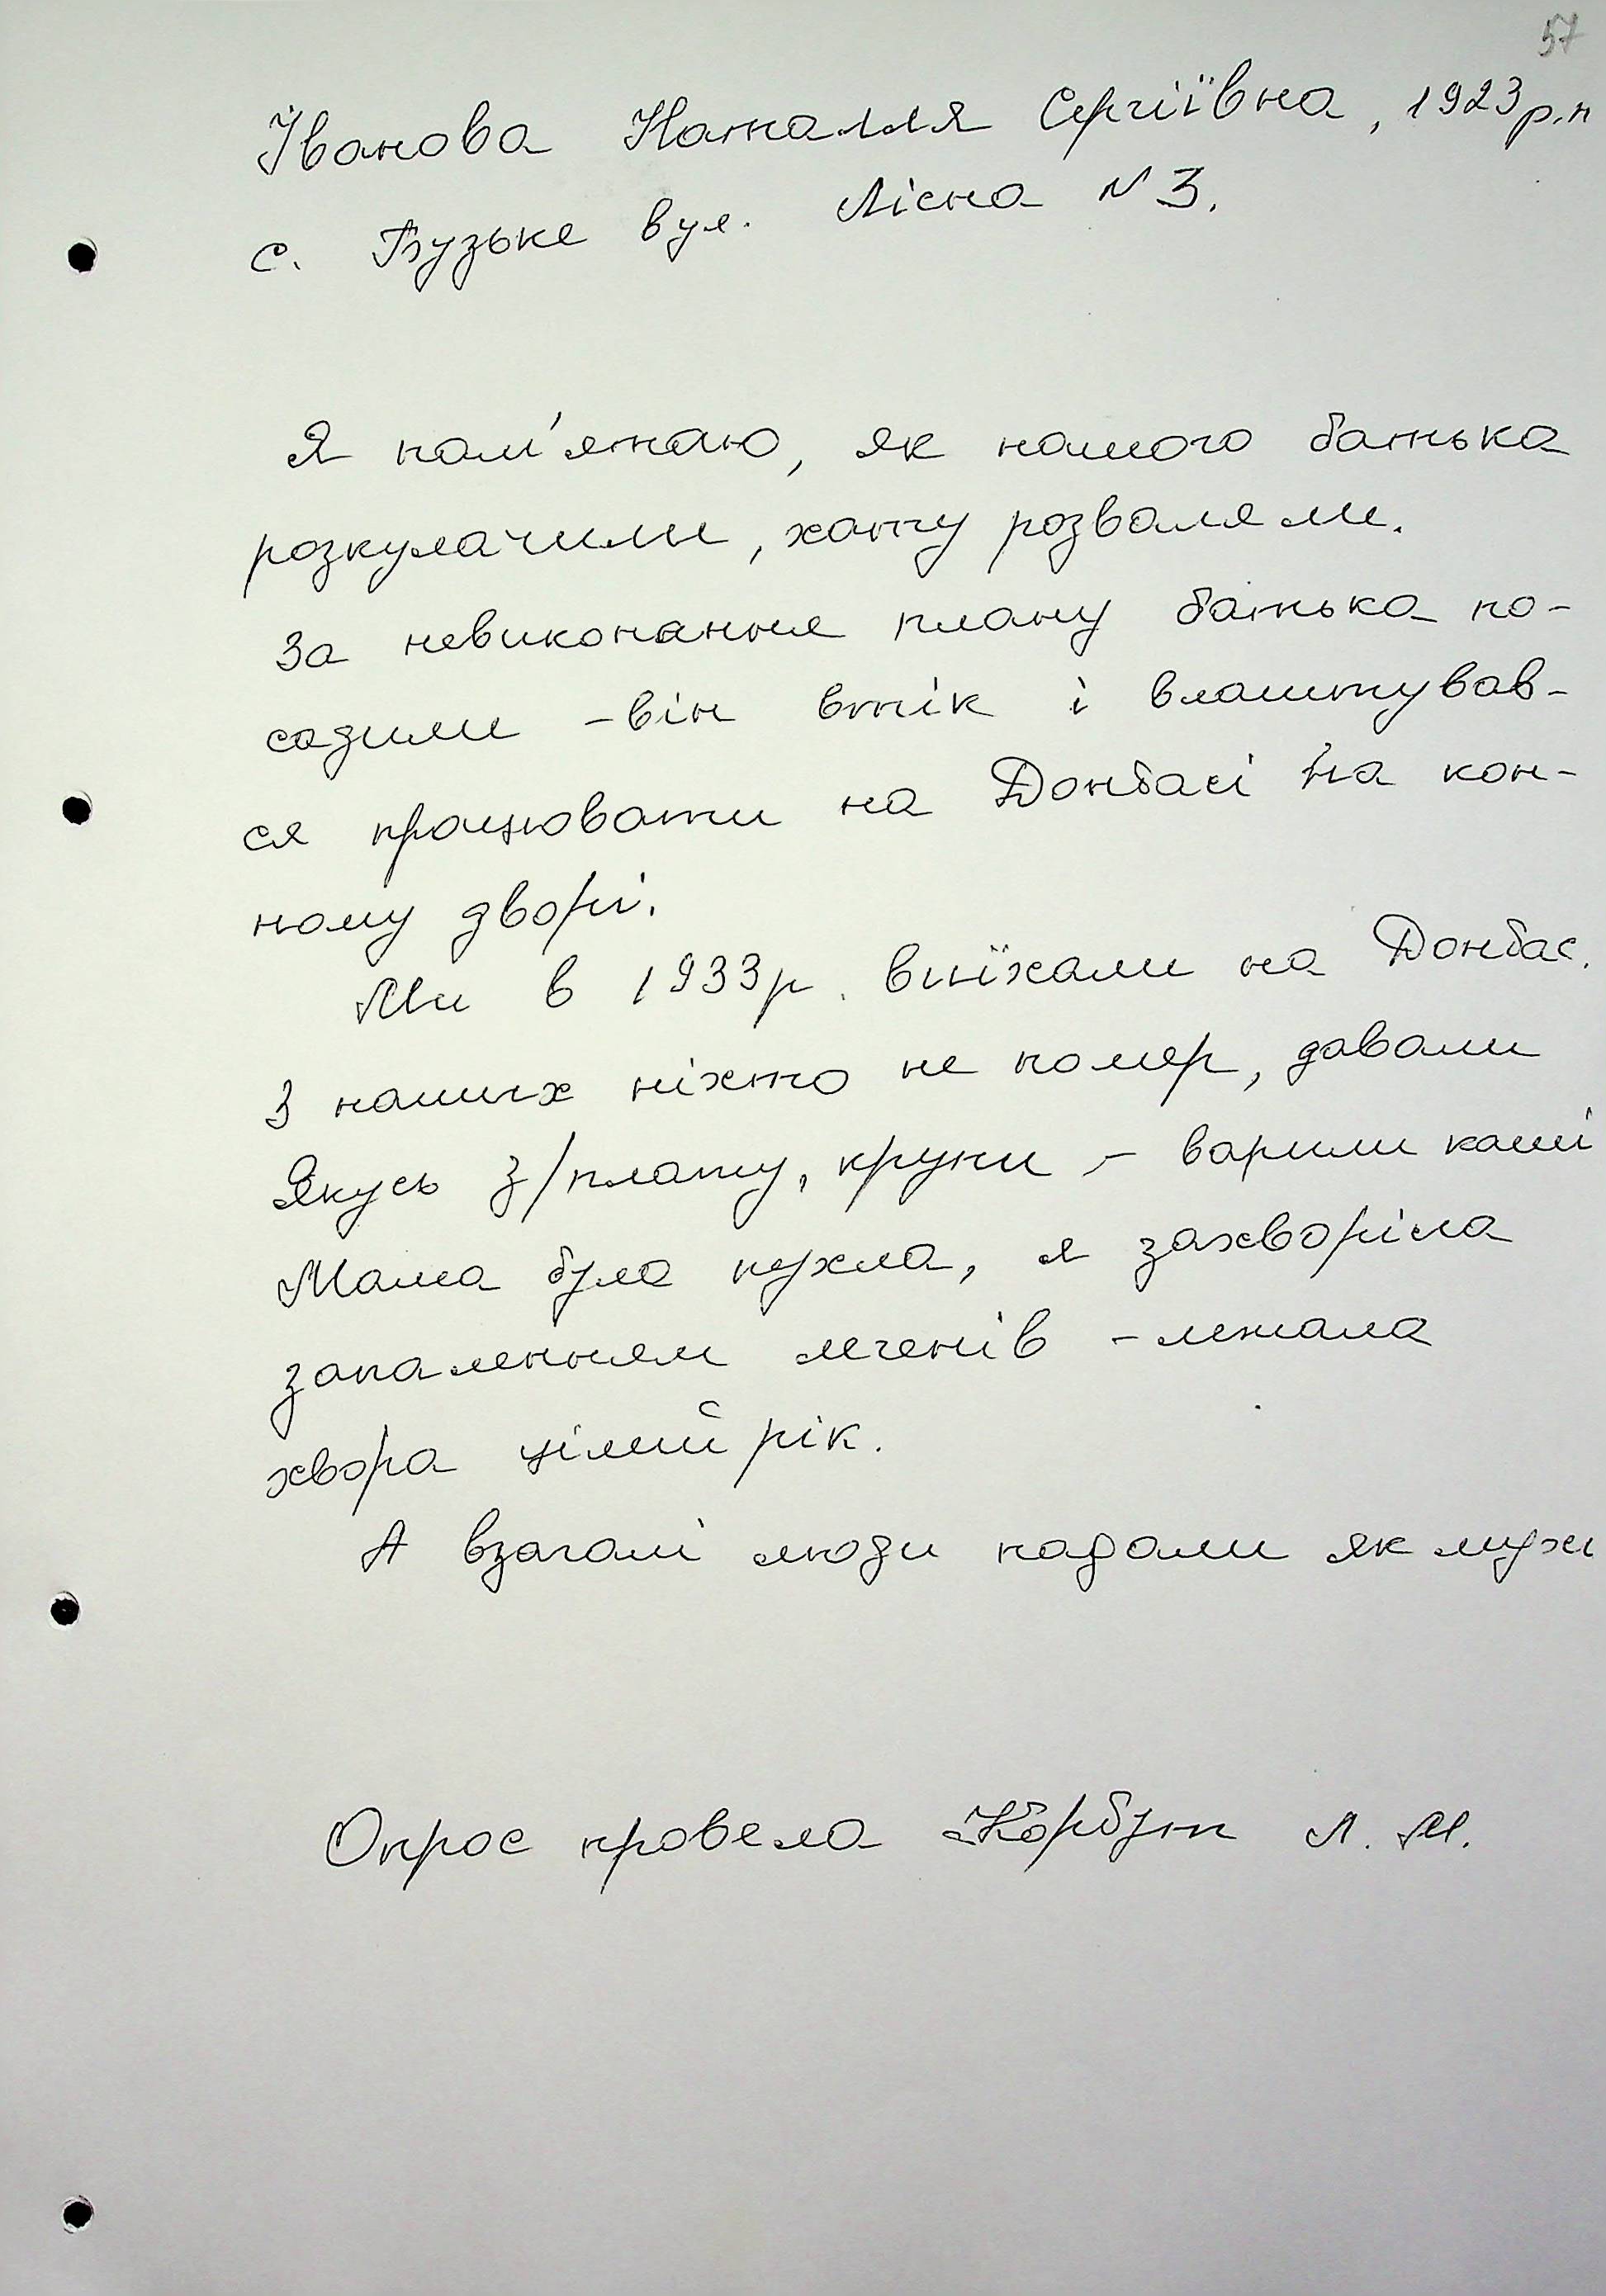 57
Іванова Наталля Сергіївна, 1923 р.н
с. Бузьке вул. Лісна N 3.
Я пам'ятаю, як нашого батька
розкулачили, хату розваляли.
За невиконання плану батька по-
садили - він втік і влаштував-
ся працювати на Донбасі на кон-
ному дворі.
Ми в 1933 р. виїхали на Донбас.
З наших ніхто не помер, давали
якусь з/плату, крупи - варили каші
Мама була пухла, я захворіла
запаленням легенів - лежала
хвора цілий рік.
А взагалі люди падали як мухи
Опрос провела Корбут Л. М.